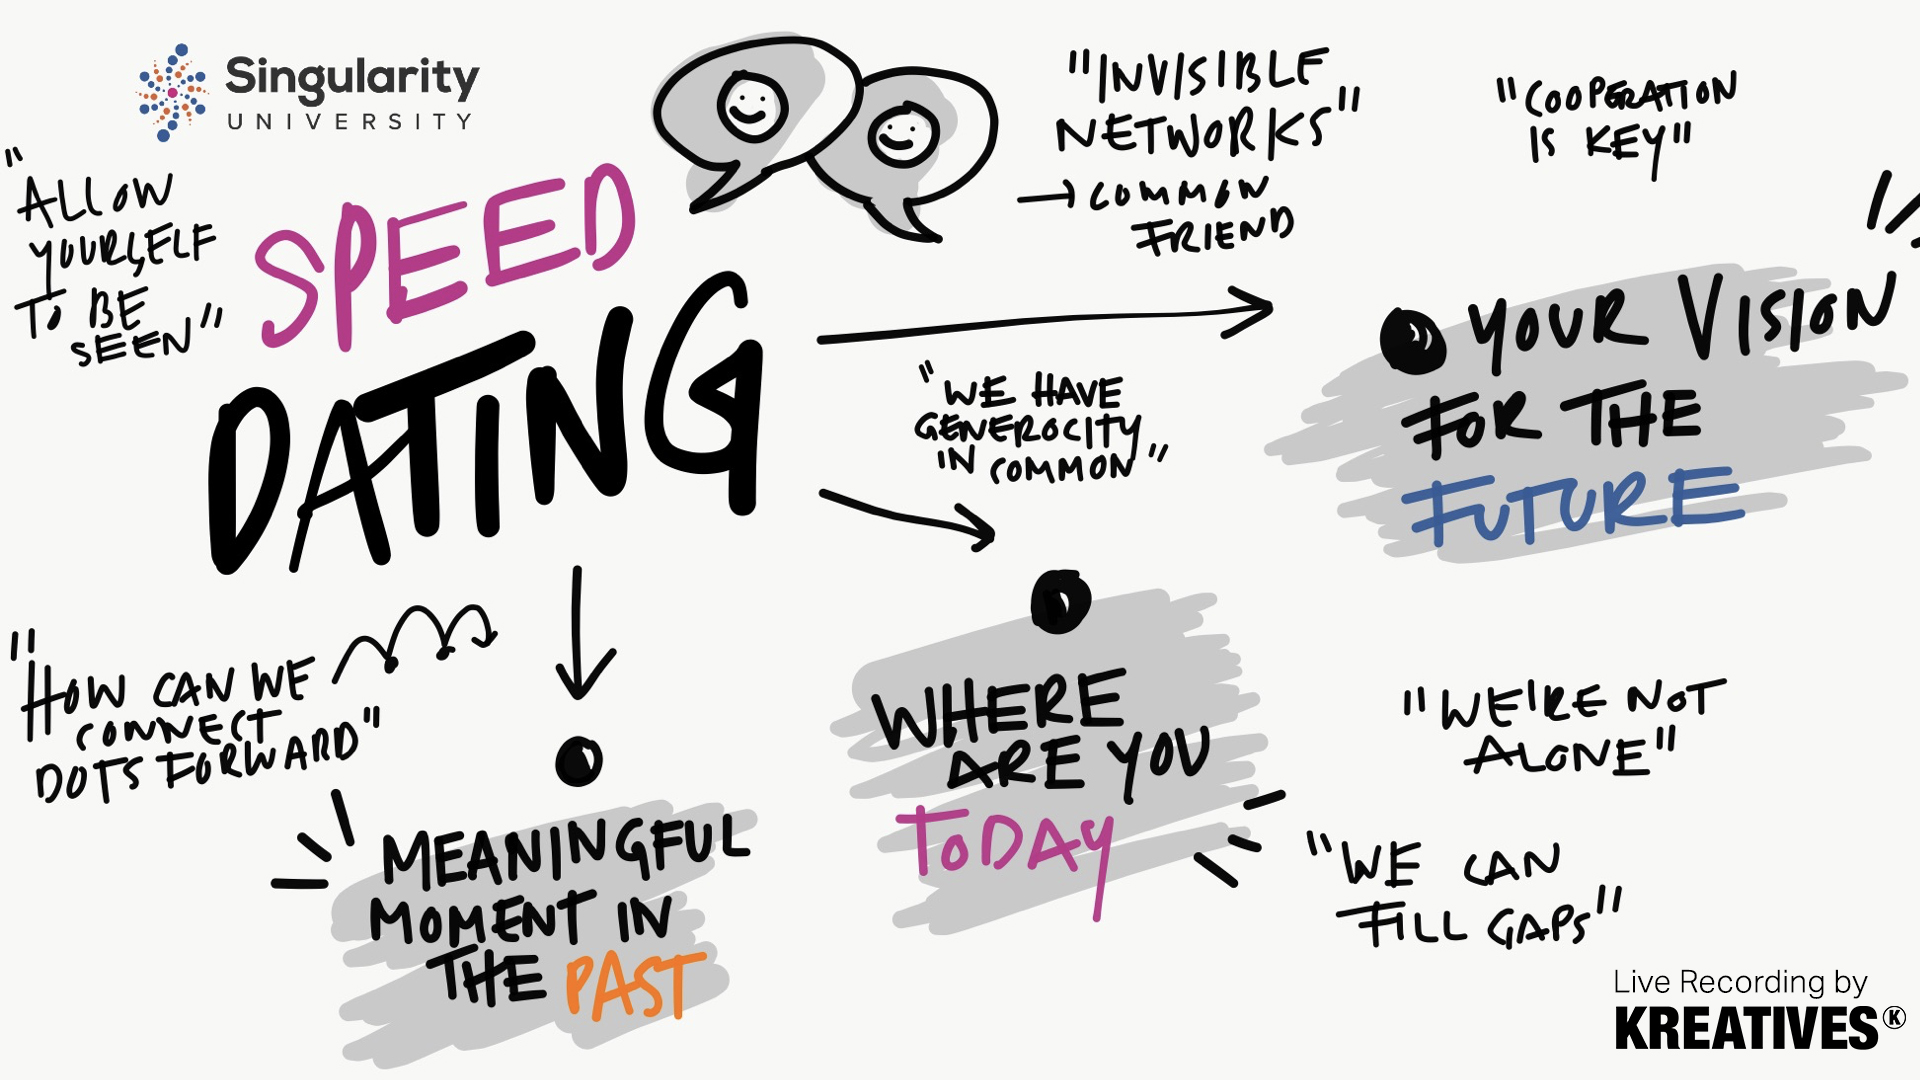 Singularity
UNIVERSITY
"ALLOW
YOURSELF
TO BE
SEEN"
SPEED
DATING
"INVISIBLE
NETWORKS"
→ COMMON
FRIEND
"COOPERATION
IS KEY"
"WE HAVE
GENEROCITY
IN COMMON"
YOUR VISION
FOR THE
FUTURE
"HOW CAN WE
CONNECT
DOTS FORWARD"
MEANINGFUL
MOMENT IN
THE PAST
WHERE
ARE YOU
TODAY
"WE'RE NOT
ALONE"
"WE CAN
FILL GAPS"
Live Recording by
KREATIVES®